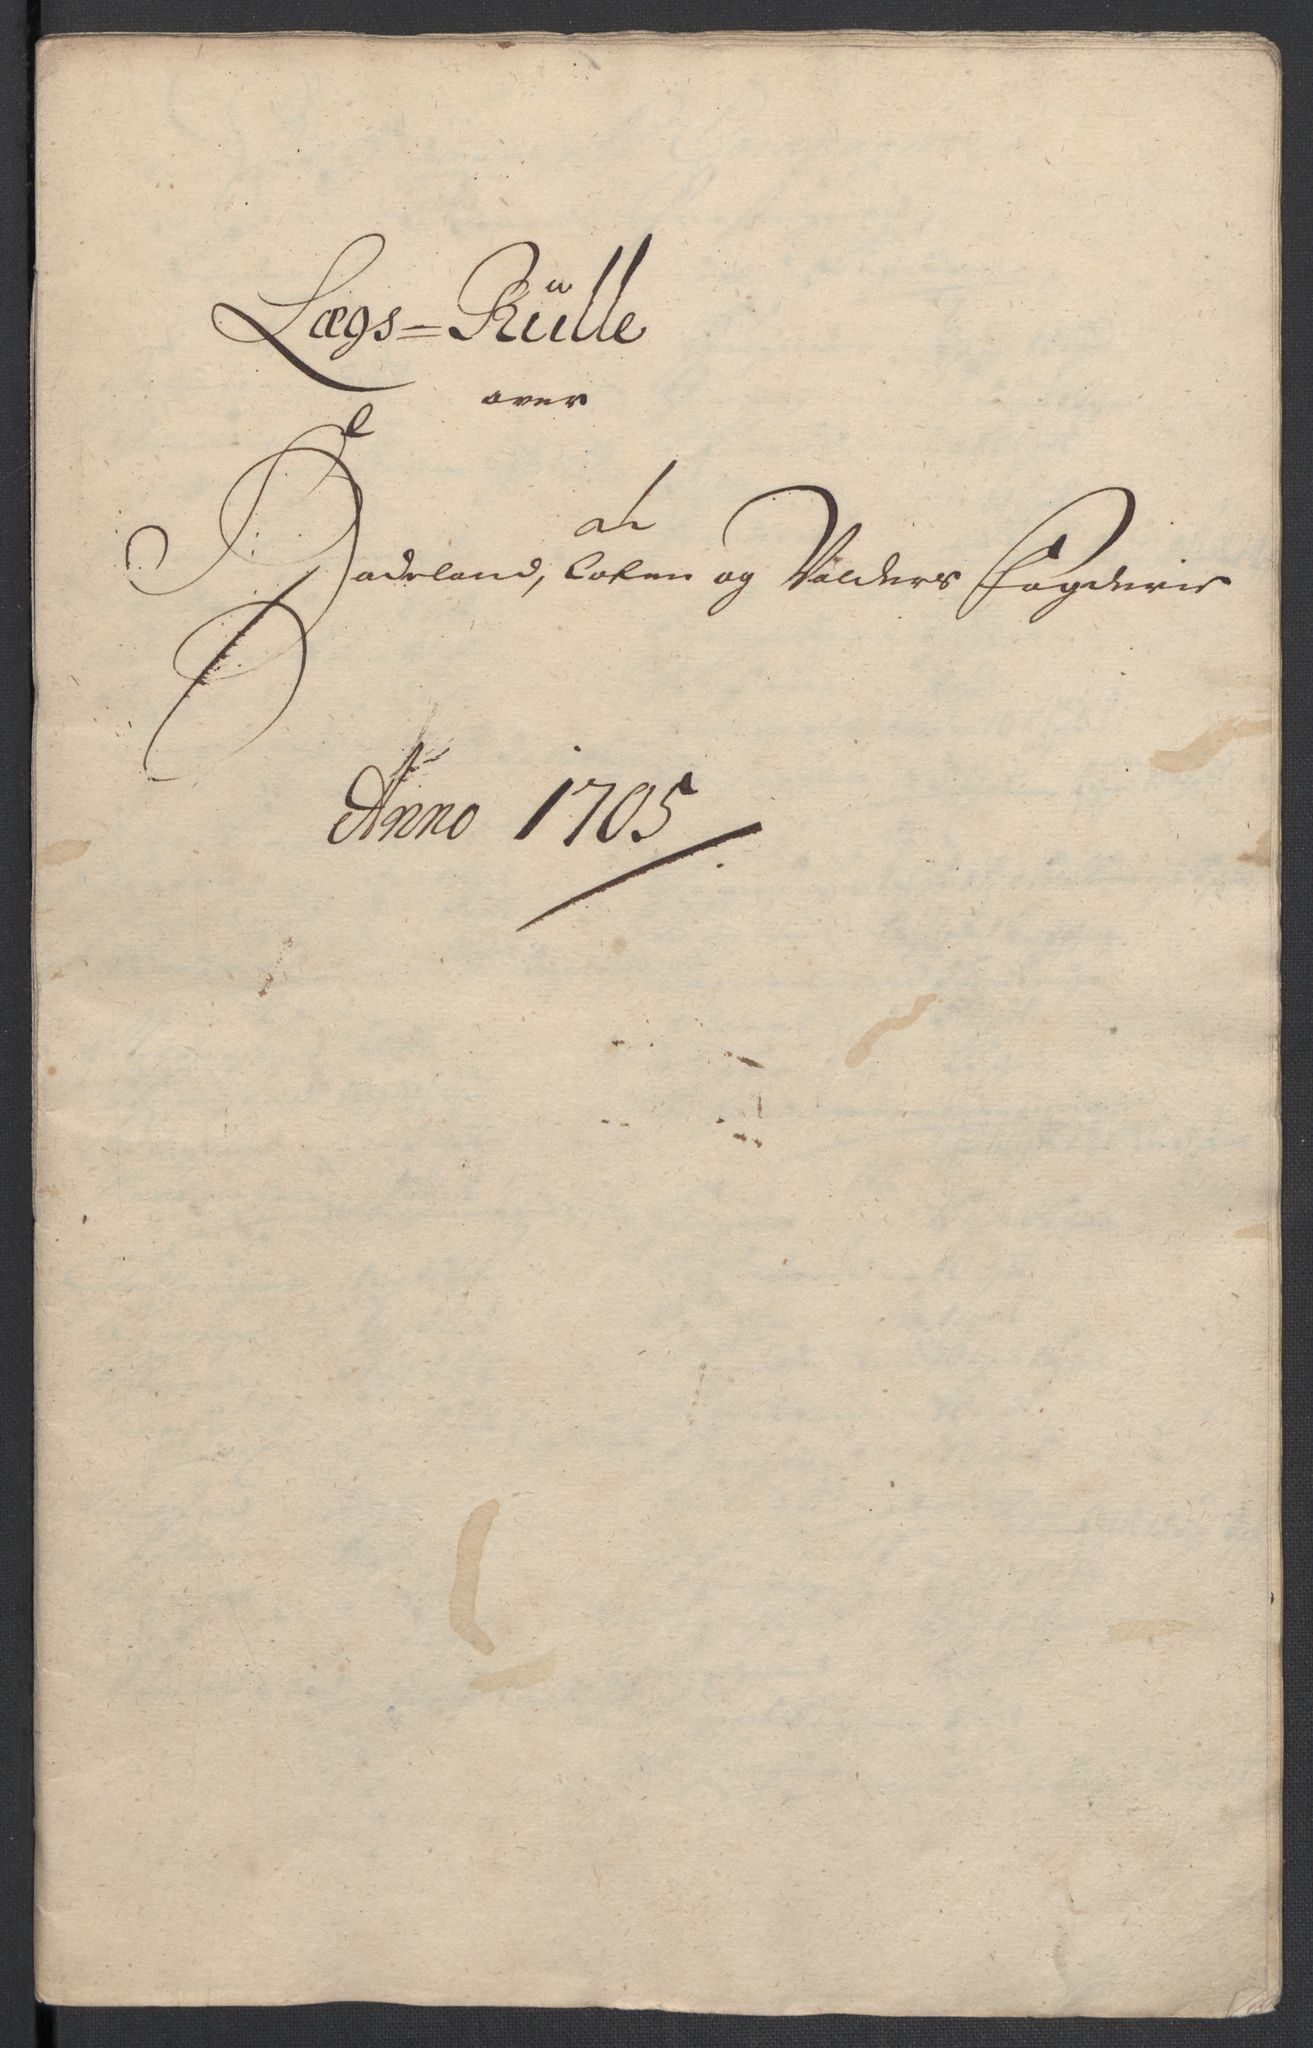 Lægs=Rülle
over
Hadeland, Toten og Valders Fogderie
Anno 1705